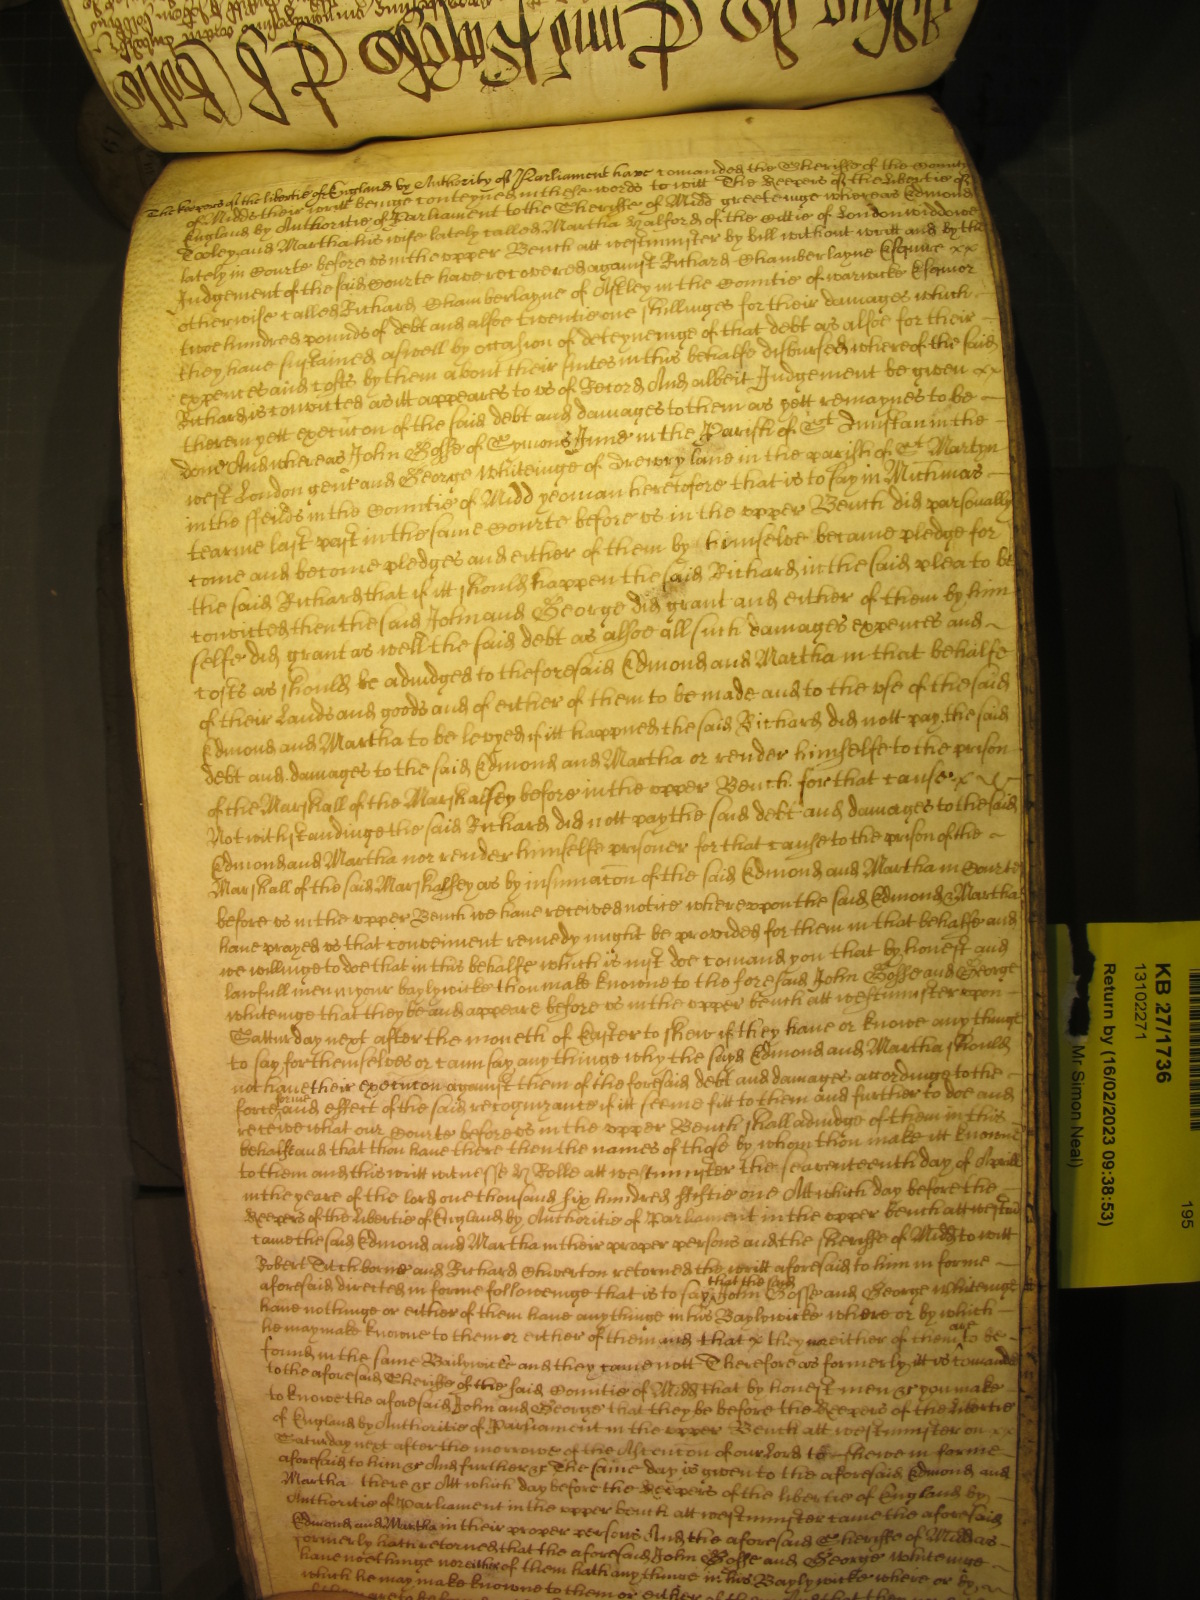 The keepers of the libertie of England by Authority of Parliament have comanded the Sheriffe of the County
of Midds their writt beinge conteyned in these words to witt The Keepers of the Libertie of
England by Authoritie of Parliament to the Sheriffe of Midd greeteinge whereas Edmond
Cooley and Martha his wife lately called Martha Halford of the Cittie of London widdowe
lately in Courte before us in the upper Bench att westminster by bill without writt and by the
Judgement of the said Courte have recovered against Richard Chamberlayne Esquire xx
otherwise called Richard Chamberlayne of Astley in the Countie of warwicke Esquior
twoe hundred pounds of debt and alsoe twentie one shillinges for their damages which
they have sustained aswell by occasion of deteyneinge of that debt as alsoe for their
expences and costs by them about their suites in this behalfe disbursed whereof the said
Richard is convicted as itt appeares to us of Record And albeit Judgement be given xx
therein yett execucon of the said debt and damages to them as yett remaynes to be
done And whereas John Gosse of Symons Inne in the Parish of St Dunstan in the
west London gent and George Whiteinge of Drewry lane in the parish of St Martyn
in the ffeilds in the Countie of Midd yeoman heretofore that is to say in Michmas
tearme last past in the same Courte before us in the upper Bench did parsonally
come and become pledges and either of them by himselve became pledge for
the said Richard that if itt should happen the said Richard in the said plea to be
convicted then the said John and George did grant and either of them by him
selfe did grant as well the said debt as alsoe all such damages expences and
costs as should be adiudged to the foresaid Edmond and Martha in that behalfe
of their Lands and goods and of either of them to be made and to the use of the said
Edmond and Martha to be levyed if itt happned the said Richard did nott pay the said
debt and damages to the said Edmond and Martha or render himselfe to the prison
of the Marshall of the Marshalsey before in the upper Bench for that cause x
Notwithstandinge the said Richard did nott pay the said debt and damages to the said
Edmond and Martha nor render himselfe prisoner for that cause to the prison of the
Marshall of the said Marshalsey as by insinuacon of the said Edmond and Martha in Courte
before us in the upper Bench we have received notice whereupon the said Edmond & Martha
have prayed us that convenient remedy might be provided for them in that behalfe and
we willinge to doe that in this behalfe which is iust doe comand you that by honest and
lawfull men in your baylywicke thou make knowne to the foresaid John Gosse and George
whiteinge that they be and appeare before us in the upper bench att westminster upon
Satturday next after the moneth of Easter to shew if they have or knowe any thinge
to say for themselves or cann say any thinge why the said Edmond and Martha should
not have their execucon against them of the foresaid debt and damages accordinge to the
force forme and effect of the said recognizance if itt seeme fitt to them and further to doe and
receive what our Courte before us in the upper Bench shall adiudge of them in this
behalfe and that thou have there then the names of those by whom thou make itt knowne
to them and this writt witnesse H Rolle att westminster the seaventeenth day of Aprill
in the yeare of the lord one thousand six hundred fiftie one Att which day before the
Keepers of the Libertie of England by Authoritie of Parliament in the upper bench att westm
came the said Edmond and Martha in their proper persons and the sheriffe of Midd to witt
Robert Titchborne and Richard Chiverton retorned the writt aforesaid to him in forme
aforesaid directed in forme followeinge that is to say that the said John Gosse and George Whiteinge
have nothinge or either of them have any thinge in his Baylywicke where or by which
he may make knowne to them or either of them and that x they nor either of them are to be
found in the same Bailywicke and they came nott Therefore as formerly itt is comanded
to the aforesaid Sheriffe of the said Countie of Midd that by honest men &c you make
to knowe the aforesaid John and George that they be before the Keepers of the Libertie
of England by Authoritie of Parliament in the upper Bench att westminster on xx
Saturday next after the morrowe of the Ascencon of our Lord to shewe in forme
aforesaid to him &c And further &c The same day is given to the aforesaid Edmond and
Martha there &c Att which day before the Keepers of the libertie of England by
Authoritie of Parliament in the upper bench att westminster came the aforesaid
Edmond and Martha in their proper persons And the aforesaid Sheriffe of Midd as
formerly hath retorned that the aforesaid John Gosse and George Whiteinge
have noethinge nor either of them hath any thinge in his Baylywicke where or by
which he may make knowne to them or either of them And that they
KB 27/1736
13102271
Return by (16/02/2023 09:38:53)
Mr Simon Neal)
195